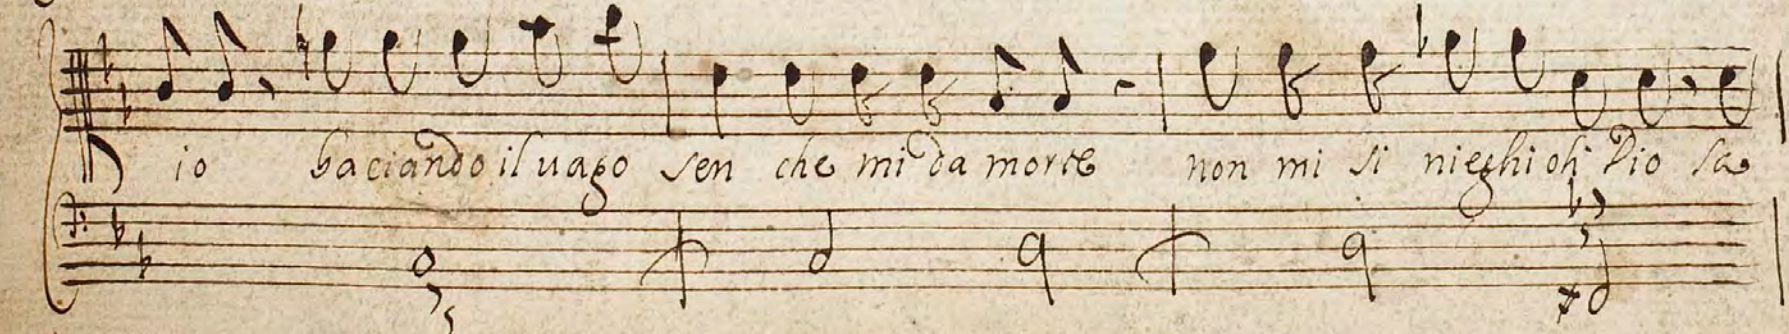 io baciando il uago sen che mi da morte non mi si nieghi oh Dio la